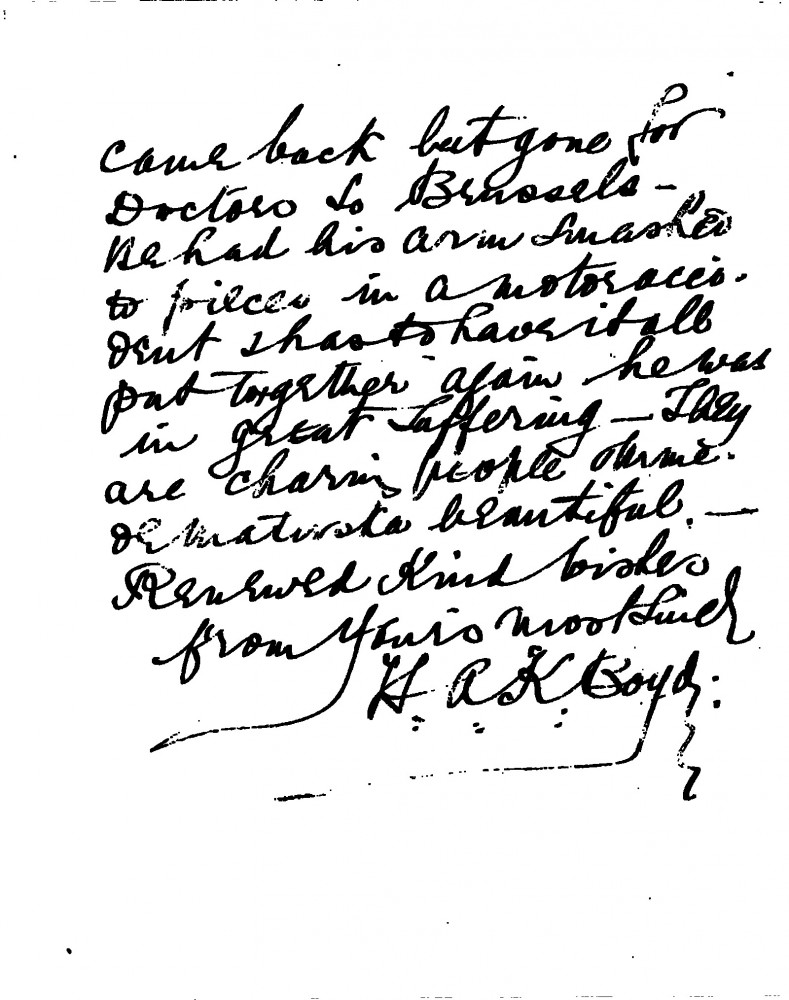 came back but gone for
Doctors to Brussels -
He had his arm smashed
to pieces in a motor acci-
dent & has to have it all
put together again he was
in great suffering — They
are charming people Mme.
de beautiful. —
Renewed Kind wishes
from Yours most sincly
H A K Boyd: